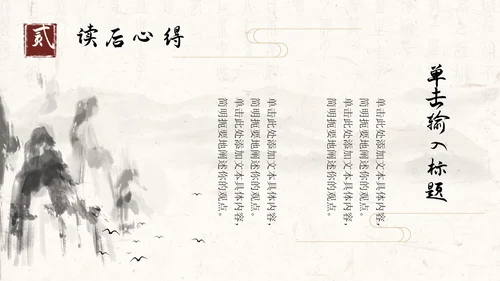 贰
读后心得
单击输入标题
单击此处添加文本具体内容，
简明扼要地阐述你的观点。
单击此处添加文本具体内容，
简明扼要地阐述你的观点。
单击此处添加文本具体内容，
简明扼要地阐述你的观点。
单击此处添加文本具体内容，
简明扼要地阐述你的观点。